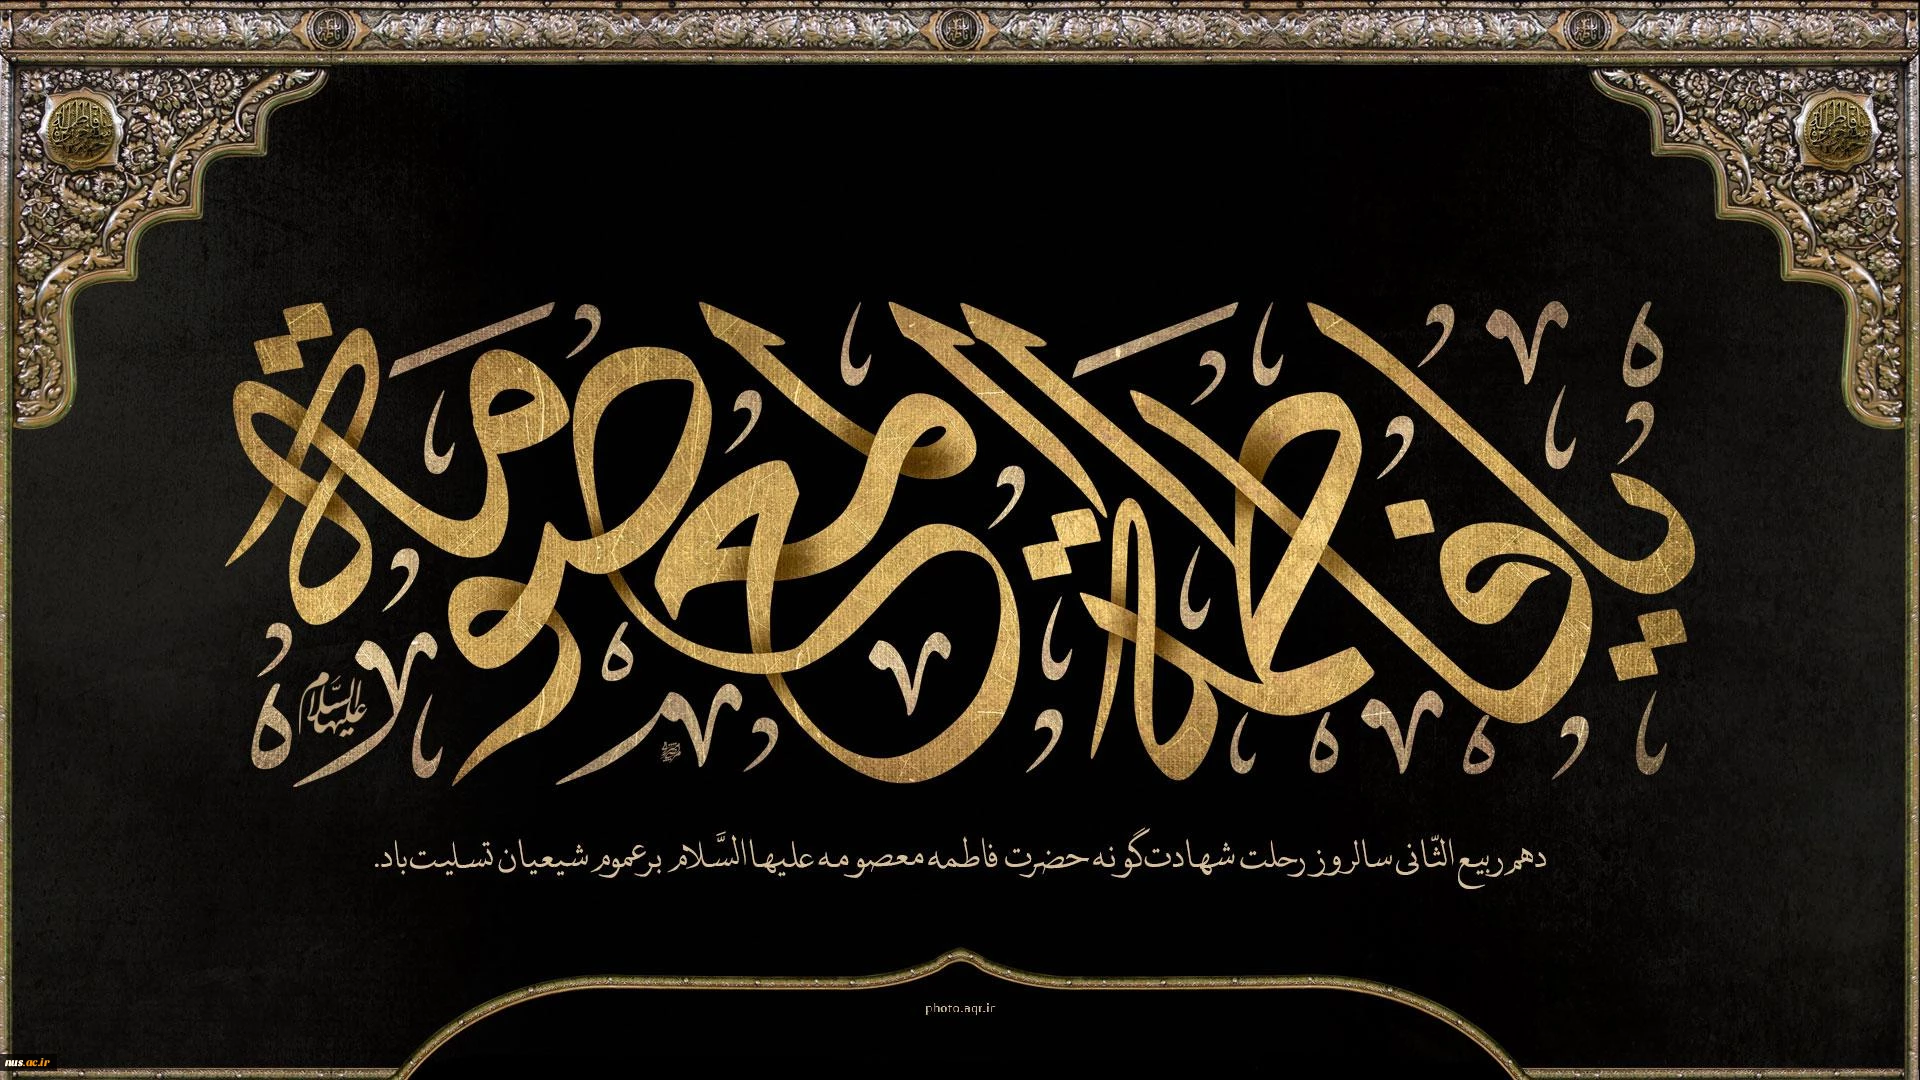 یا فاطمة المعصومة
علیها السلام
دهم ربیع الثّانی سالروز رحلت شهادت‌گونه حضرت فاطمه معصومه علیها السَّلام بر عموم شیعیان تسلیت‌باد.
photo.aqr.ir
nus.ac.ir